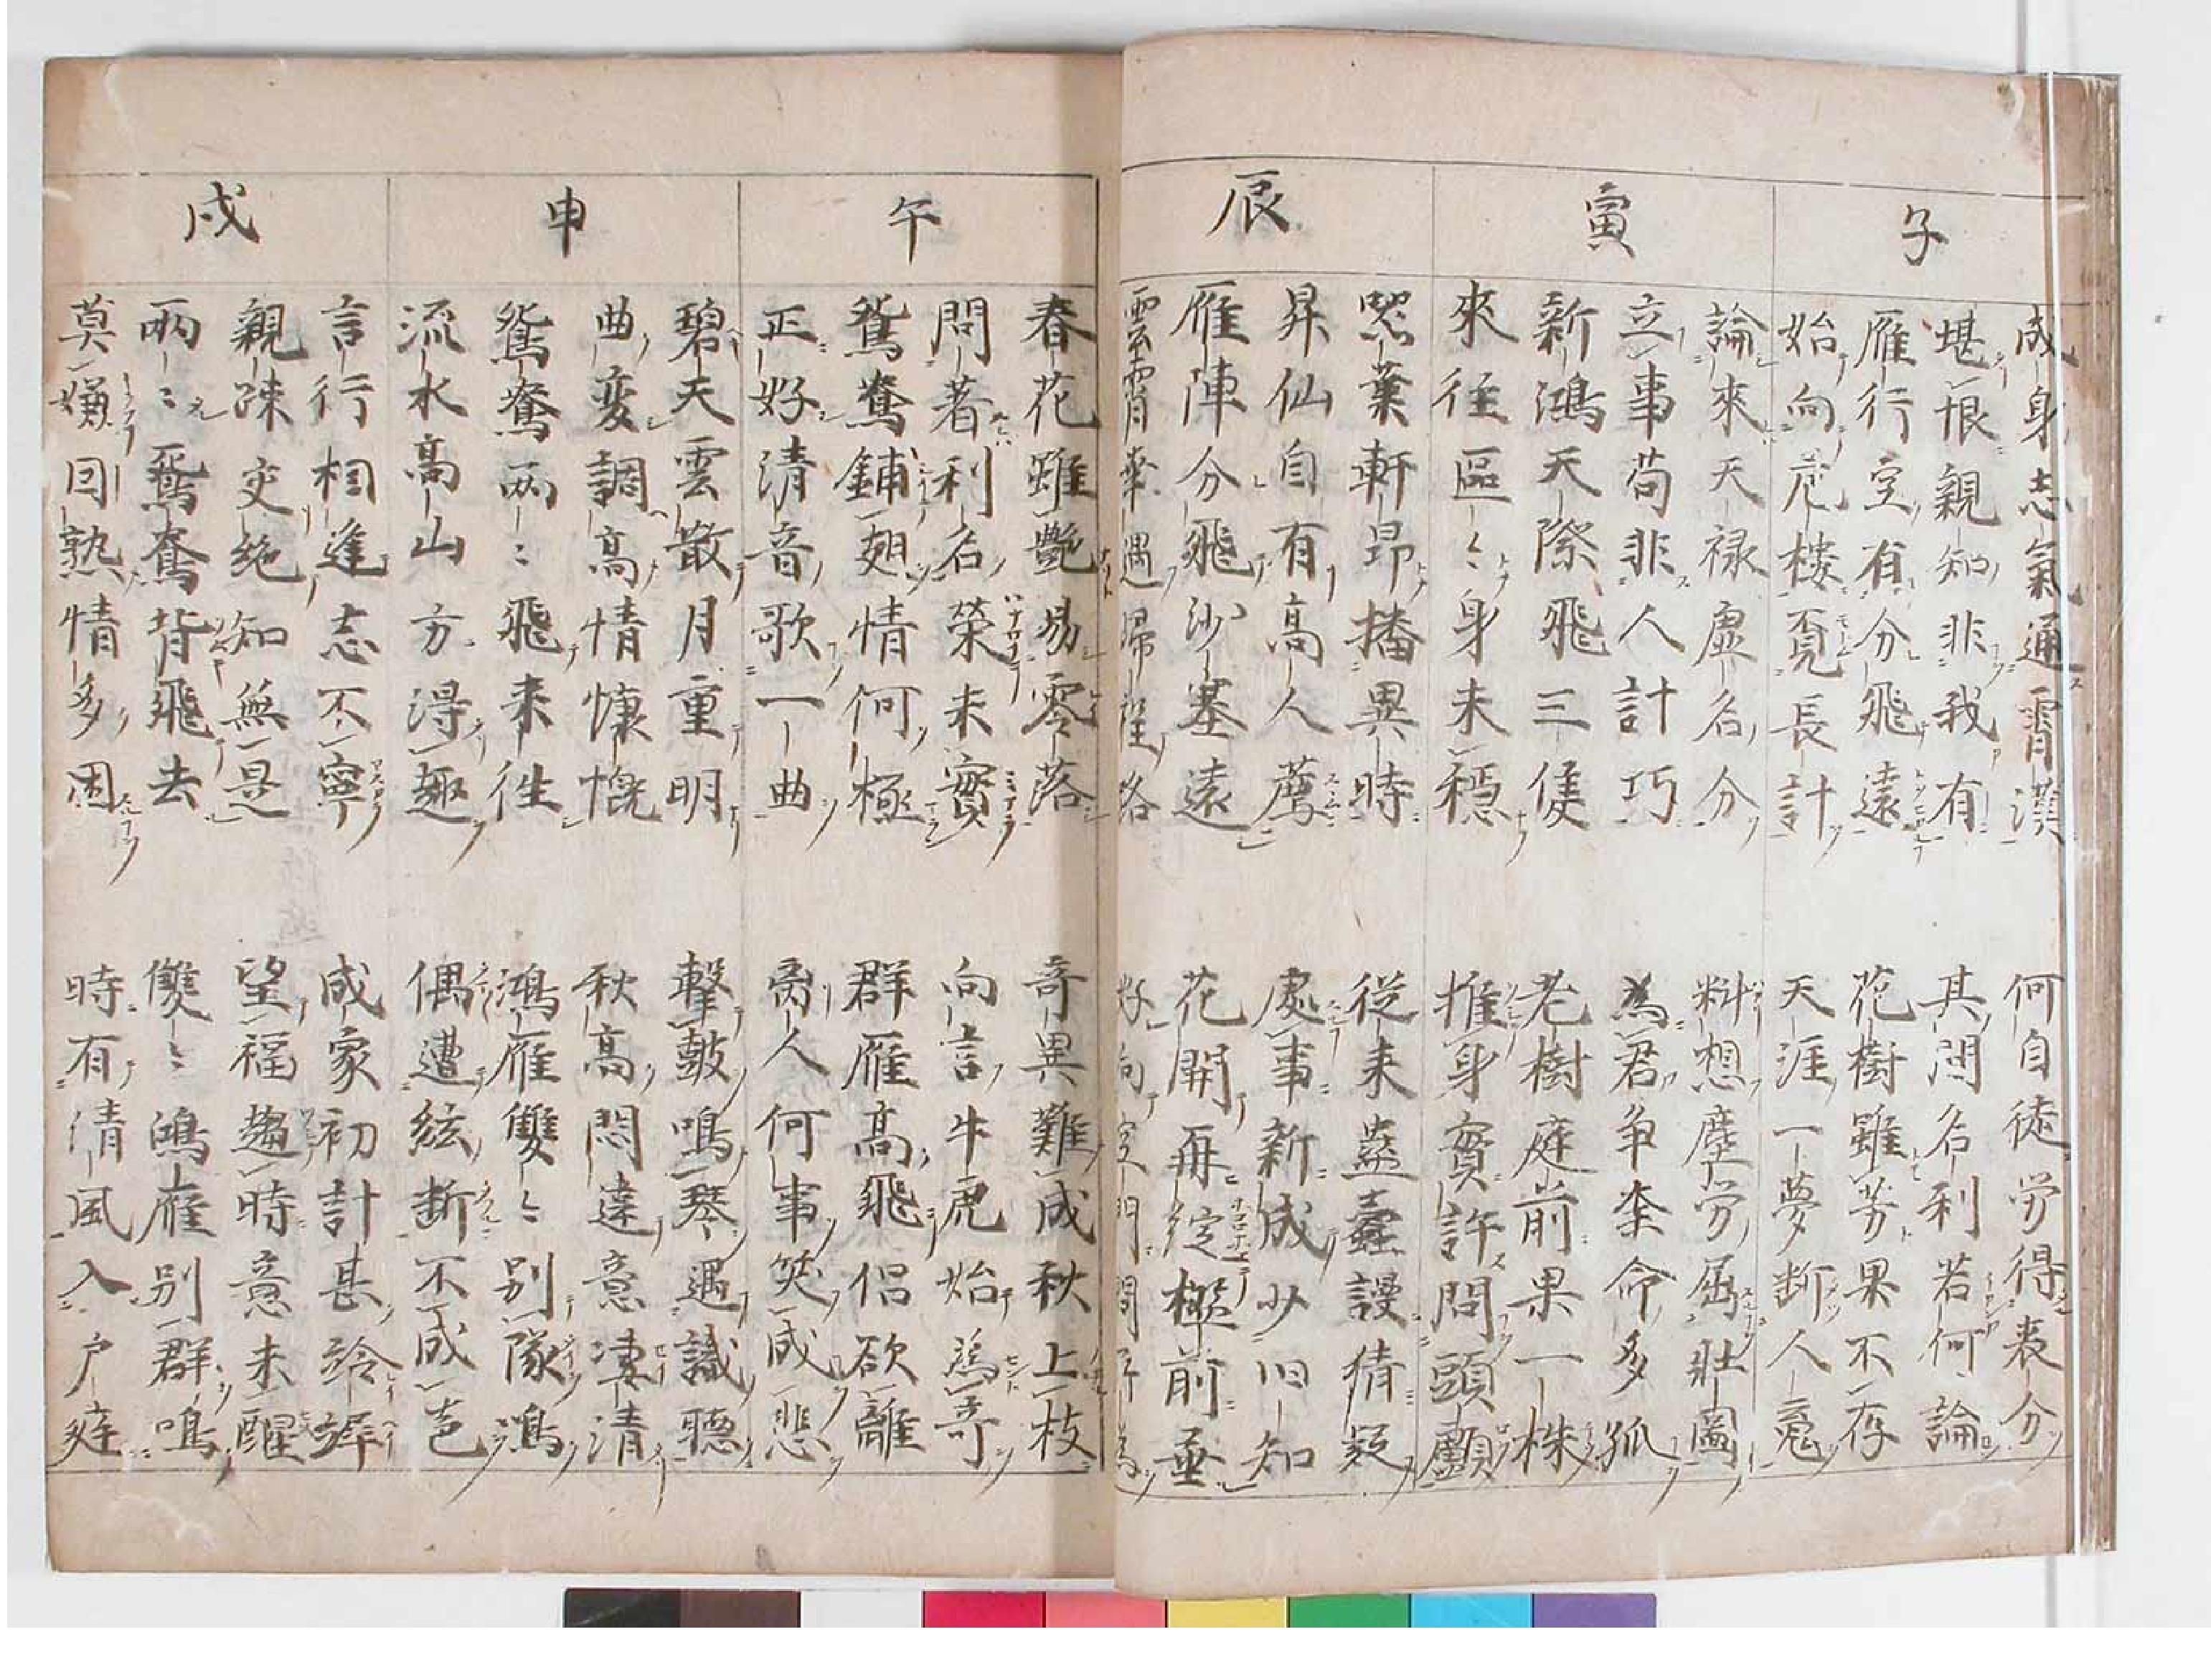 子
成身志氣通霄漢 何自徒労得表分
堪恨親知非我有 其間名利若何論
雁行空有分飛遠 花樹雖芳果不存
始向危楼覓長計 天涯一夢断人魂
寅
論來天禄虚名分 料想塵労屈壮圖
立事苟非人計巧 為君争奈命多孤
新鴻天際飛三隻 老樹庭前果一株
來往區〻身未穏 推身實許問頭顱
辰
器業軒昻播異時 從来蓋蠹謾猜疑
昇仙自有高人薦 處事新成少旧知
雁陣分飛沙塞遠 花開再綻檻前垂
雲霄幸遇帰程路 好向空門問所為
午
春花雖艶易零落 奇異難成秋上枝
問著利名榮未實 向言牛虎始為奇
鴛鴦鋪翅情何極 群雁高飛侶欲離
正好清音歌一曲 离人何事笑成悲
申
碧天雲散月重明 擊鼓鳴琴遇識聴
曲変調高情懐慨 秋高悶達意凄清
鴛鴦兩〻飛来往 鴻雁雙〻別隊鴻
流水高山方得趣 偶遭絃断不成音
戌
言行相逢志不寧 成家初計甚玲娉
親疎交絶知無是 望福趨時意未醒
兩〻鴛鴦背飛去 雙〻鴻雁別群鳴
莫嫌回熟情多困 時有清風入戸庭